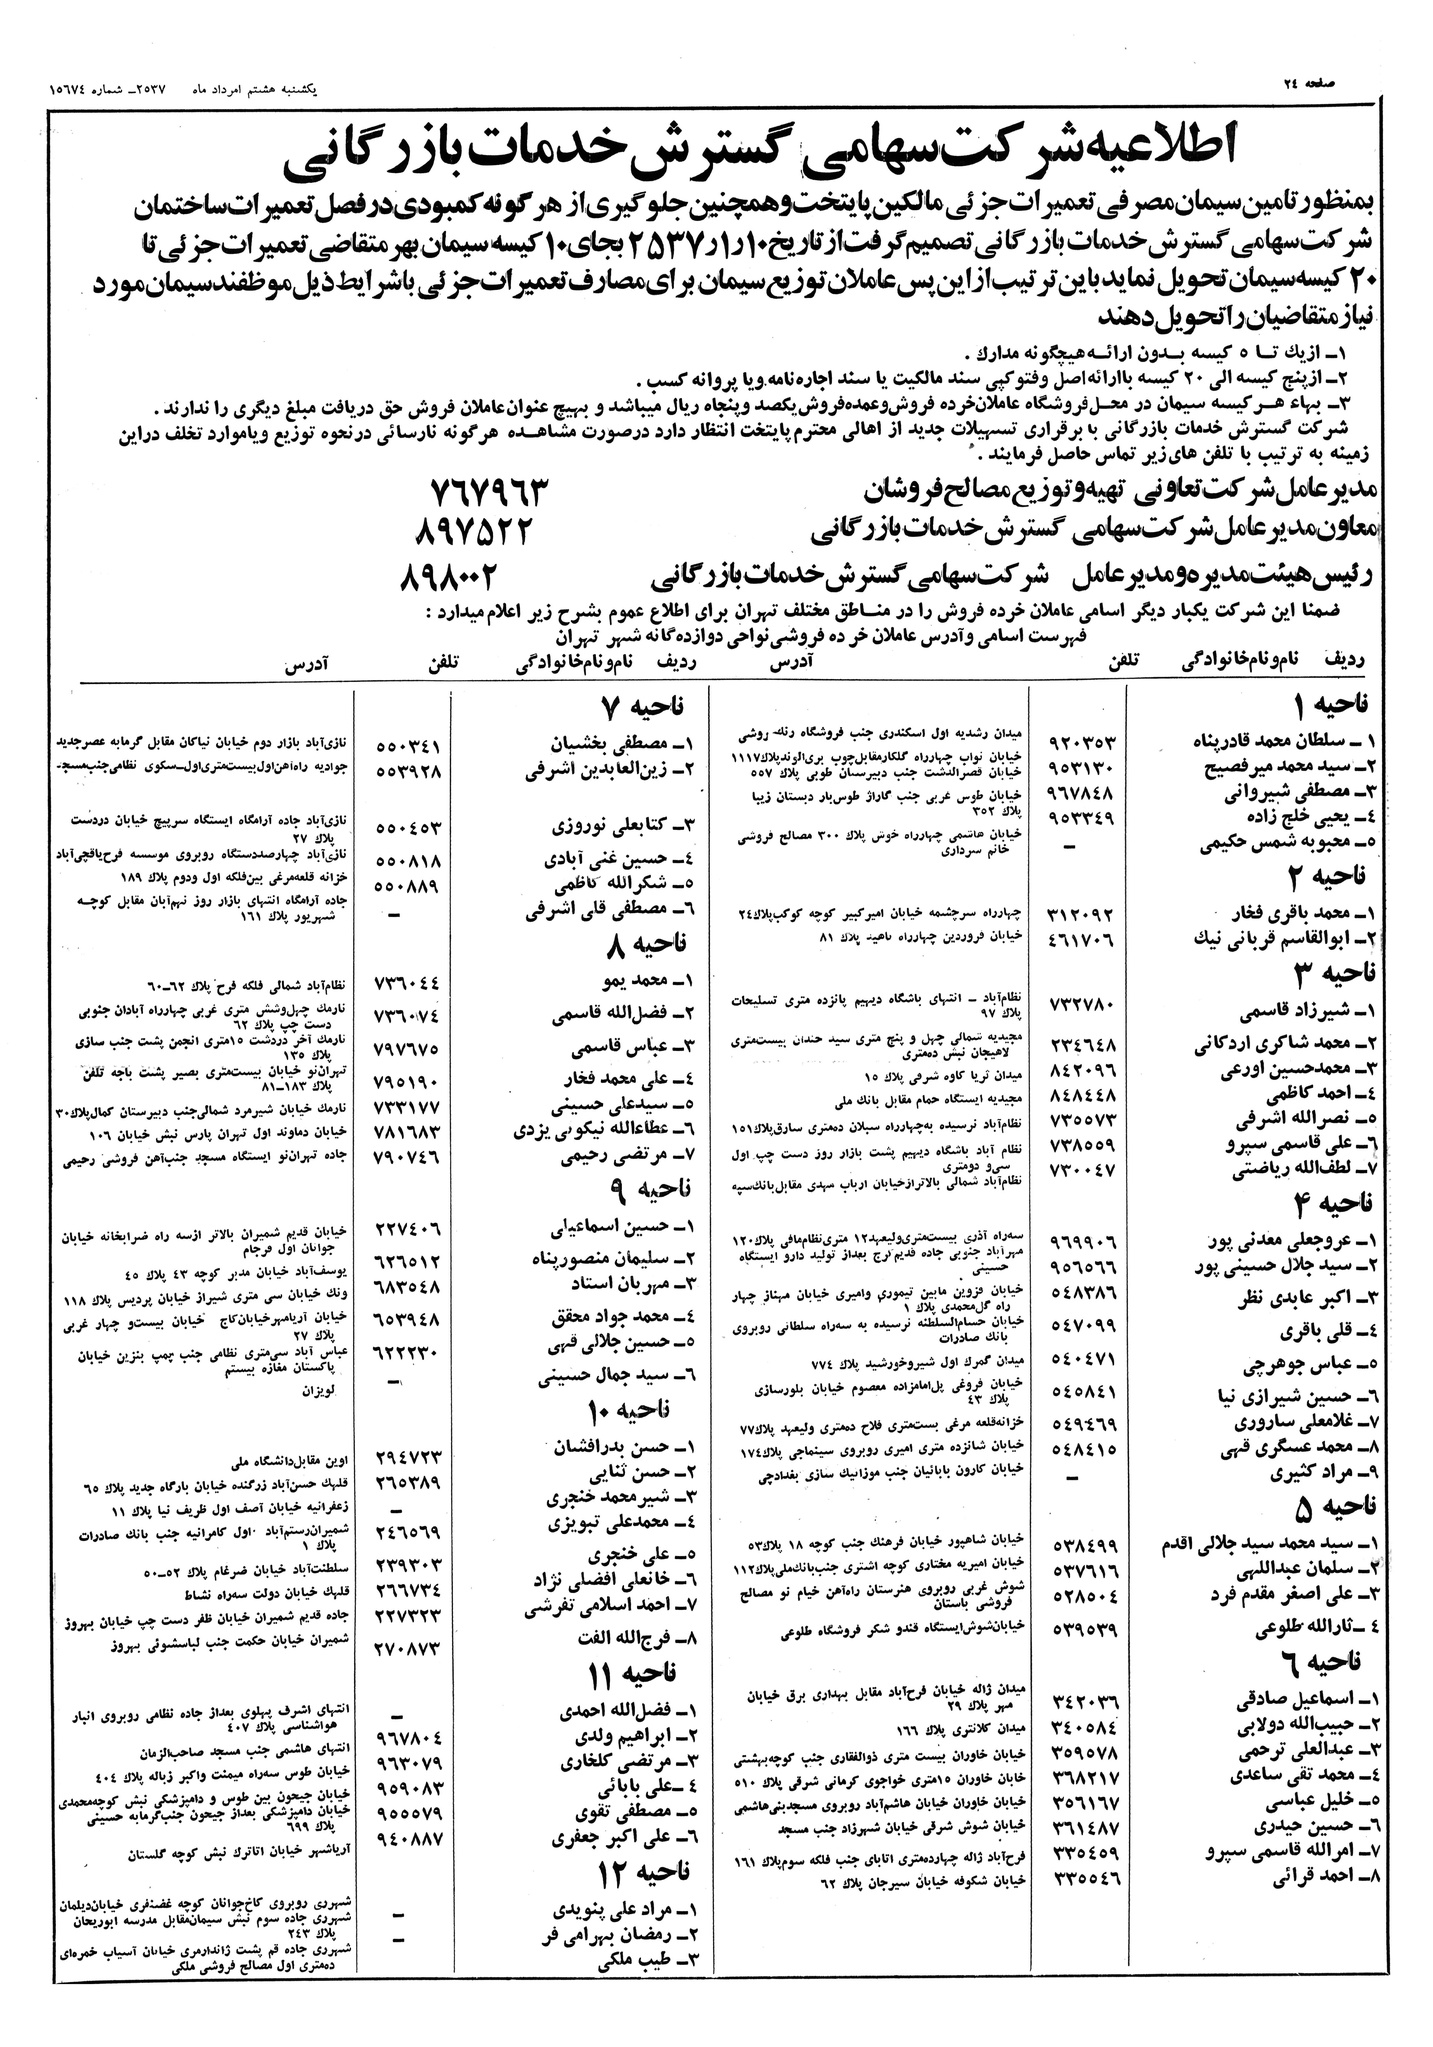 صفحه ۲۴
یکشنبه هشتم امرداد ماه ۲۵۳۷ـ شماره ۱۵۶۷۴
اطلاعیه شرکت سهامی گسترش خدمات بازرگانی
بمنظور تامین سیمان مصرفی تعمیرات جزئی مالکین پایتخت و همچنین جلوگیری از هرگونه کمبودی در فصل تعمیرات ساختمان
شرکت سهامی گسترش خدمات بازرگانی تصمیم گرفت از تاریخ ۱۰ر۱ر۲۵۳۷ بجای ۱۰ کیسه سیمان بهر متقاضی تعمیرات جزئی تا
۲۰ کیسه سیمان تحویل نماید باین ترتیب از این پس عاملان توزیع سیمان برای مصارف تعمیرات جزئی باشرایط ذیل موظفند سیمان مورد
نیاز متقاضیان را تحویل دهند
۱ـ از یک تا ۵ کیسه بدون ارائه هیچگونه مدارک .
۲ـ از پنج کیسه الی ۲۰ کیسه با ارائه اصل وفتوکپی سند مالکیت یا سند اجاره نامه ویا پروانه کسب .
۳ـ بهاء هر کیسه سیمان در محل فروشگاه عاملان خرده فروش و عمده فروش یکصد و پنجاه ریال میباشد و بهیچ عنوان عاملان فروش حق دریافت مبلغ دیگری را ندارند .
شرکت گسترش خدمات بازرگانی با برقراری تسهیلات جدید از اهالی محترم پایتخت انتظار دارد درصورت مشاهده هرگونه نارسائی درنحوه توزیع ویاموارد تخلف دراین
زمینه به ترتیب با تلفن های زیر تماس حاصل فرمایند .
مدیر عامل شرکت تعاونی تهیه و توزیع مصالح فروشان ۷۶۷۹۶۳
معاون مدیر عامل شرکت سهامی گسترش خدمات بازرگانی ۸۹۷۵۲۲
رئیس هیئت مدیره و مدیر عامل شرکت سهامی گسترش خدمات بازرگانی ۸۹۸۰۰۲
ضمنا این شرکت یکبار دیگر اسامی عاملان خرده فروش را در مناطق مختلف تهران برای اطلاع عموم بشرح زیر اعلام میدارد :
فهرست اسامی وآدرس عاملان خرده فروشی نواحی دوازده گانه شهر تهران
ردیف نام و نام خانوادگی تلفن آدرس
ردیف نام و نام خانوادگی تلفن آدرس
ناحیه ۱
۱ ـ سلطان محمد قادرپناه ۹۲۰۳۵۳ میدان رشدیه اول اسکندری جنب فروشگاه رنگ روشی
۲ـ سید محمد میرفصیح ۹۵۳۱۳۰ خیابان نواب چهارراه گلکار مقابل چوب بری الوند پلاک ۱۱۱۷
۳ـ مصطفی شیروانی ۹۶۷۸۴۸ خیابان قصرالدشت جنب دبیرستان طوبی پلاک ۵۵۷
۴ـ یحیی خلج زاده ۹۵۳۳۴۹ خیابان طوس غربی جنب گاراژ طوس بار دبستان زیبا
پلاک ۳۵۲
۵ـ محبوبه شمس حکیمی ـ خیابان هاشمی چهارراه خوش پلاک ۳۰۰ مصالح فروشی
خانم سرداری
ناحیه ۲
۱ـ محمد باقری فخار ۳۱۲۰۹۲ چهارراه سرچشمه خیابان امیرکبیر کوچه کوکب پلاک ۲۴
۲ـ ابوالقاسم قربانی نیک ۴۶۱۷۰۶ خیابان فروردین چهارراه ناهید پلاک ۸۱
ناحیه ۳
۱ـ شیرزاد قاسمی ۷۳۲۷۸۰ نظام‌آباد ـ انتهای باشگاه دیهیم پانزده متری تسلیحات
پلاک ۹۷
۲ـ محمد شاکری اردکانی ۲۳۴۶۴۸ مجیدیه شمالی چهل و پنج متری سید خندان بیست‌متری
لاهیجان نبش ده‌متری
۳ـ محمدحسین اورعی ۸۴۲۰۹۶ میدان ثریا کاوه شرقی پلاک ۱۵
۴ـ احمد کاظمی ۸۴۸۴۴۸ مجیدیه ایستگاه حمام مقابل بانک ملی
۵ـ نصرالله اشرفی ۷۳۵۵۷۳ نظام‌آباد نرسیده به چهارراه سبلان ده‌متری سارق پلاک ۱۵۱
۶ـ علی قاسمی سپرو ۷۳۸۵۵۹ نظام آباد باشگاه دیهیم پشت بازار روز دست چپ اول
سی‌و دومتری
۷ـ لطف‌الله ریاضتی ۷۳۰۰۴۷ نظام‌آباد شمالی بالاتر از خیابان ارباب مهدی مقابل بانک سپه
ناحیه ۴
۱ـ عروجعلی معدنی پور ۹۶۹۹۰۶ سه‌راه آذری بیست‌متری ولیعهد ۱۲ متری نظام‌مافی پلاک ۱۲۰
۲ـ سید جلال حسینی پور ۹۵۶۵۶۶ مهرآباد جنوبی جاده قدیم کرج بعداز تولید دارو ایستگاه
حسینی
۳ـ اکبر عابدی نظر ۵۴۸۳۸۶ خیابان قزوین مابین تیموری وامیری خیابان مهناز چهار
راه گل‌محمدی پلاک ۱
۴ـ قلی باقری ۵۴۷۰۹۹ خیابان حسام‌السلطنه نرسیده به سه‌راه سلطانی روبروی
بانک صادرات
۵ـ عباس جوهرچی ۵۴۰۴۷۱ میدان گمرک اول شیروخورشید پلاک ۷۷۴
۶ـ حسین شیرازی نیا ۵۴۵۸۴۱ خیابان فروغی پل امامزاده معصوم خیابان بلورسازی
پلاک ۴۳
۷ـ غلامعلی ساروری ۵۴۹۴۶۹ خزانه قلعه مرغی بیست‌متری فلاح ده‌متری ولیعهد پلاک ۷۷
۸ـ محمد عسگری قهی ۵۴۸۴۱۵ خیابان شانزده متری امیری روبروی سینماجی پلاک ۱۷۴
۹ـ مراد کثیری ـ خیابان کارون بابائیان جنب موزائیک سازی بغدادچی
ناحیه ۵
۱ـ سید محمد سید جلالی اقدم ۵۳۸۴۹۹ خیابان شاهپور خیابان فرهنگ جنب کوچه ۱۸ پلاک ۵۳
۲ـ سلمان عبداللهی ۵۳۷۶۱۶ خیابان امیریه مختاری کوچه اشتری جنب بانک ملی پلاک ۱۱۲
۳ـ علی اصغر مقدم فرد ۵۲۸۵۰۴ شوش غربی روبروی هنرستان راه‌آهن خیام نو مصالح
فروشی باستان
۴ ـ ثارالله طلوعی ۵۳۹۵۳۹ خیابان شوش ایستگاه قندو شکر فروشگاه طلوعی
ناحیه ۶
۱ـ اسماعیل صادقی ۳۴۲۰۳۶ میدان ژاله خیابان فرح‌آباد مقابل بهداری برق خیابان
مهر پلاک ۲۹
۲ـ حبیب‌الله دولابی ۳۴۰۵۸۴ میدان کلانتری پلاک ۱۶۶
۳ـ عبدالعلی ترحمی ۳۵۹۵۷۸ خیابان خاوران بیست متری ذوالفقاری جنب کوچه بهشتی
۴ـ محمد تقی ساعدی ۳۶۸۲۱۷ خابان خاوران ۱۵متری خواجوی کرمانی شرقی پلاک ۵۱۰
۵ـ خلیل عباسی ۳۵۶۱۶۷ خیابان خاوران خیابان هاشم‌آباد روبروی مسجد بنی هاشمی
۶ـ حسین حیدری ۳۶۱۴۸۷ خیابان شوش شرقی خیابان شهرزاد جنب مسجد
۷ـ امرالله قاسمی سپرو ۳۳۵۴۵۹ فرح‌آباد ژاله چهارده‌متری اتابای جنب فلکه سوم پلاک ۱۶۱
۸ـ احمد قرائی ۳۳۵۵۴۶ خیابان شکوفه خیابان سیرجان پلاک ۶۲
ناحیه ۷
۱ـ مصطفی بخشیان ۵۵۰۳۴۱ نازی‌آباد بازار دوم خیابان نیاکان مقابل گرمابه عصر جدید
۲ـ زین‌العابدین اشرفی ۵۵۳۹۲۸ جوادیه راه‌آهن اول بیست‌متری اول ـ سکوی نظامی جنب مسجد
۳ـ کتابعلی نوروزی ۵۵۰۴۵۳ نازی‌آباد جاده آرامگاه ایستگاه سرپیچ خیابان دردست
پلاک ۲۷
۴ـ حسین غنی آبادی ۵۵۰۸۱۸ نازی‌آباد چهارصددستگاه روبروی موسسه فرح یاقچی‌آباد
۵ـ شکرالله کاظمی ۵۵۰۸۸۹ خزانه قلعه‌مرغی بین فلکه اول ودوم پلاک ۱۸۹
۶ـ مصطفی قلی اشرفی ـ جاده آرامگاه انتهای بازار روز نهم‌آبان مقابل کوچه
شهریور پلاک ۱۶۱
ناحیه ۸
۱ـ محمد یمو ۷۳۶۰۴۴ نظام‌آباد شمالی فلکه فرح پلاک ۶۲ـ۶۰
۲ـ فضل‌الله قاسمی ۷۳۶۰۷۴ نارمک چهل‌وشش متری غربی چهارراه آبادان جنوبی
دست چپ پلاک ۶۲
۳ـ عباس قاسمی ۷۹۷۶۷۵ نارمک آخر دردشت ۱۵متری انجمن پشت جنب سازی
پلاک ۱۳۵
۴ـ علی محمد فخار ۷۹۵۱۹۰ تهران‌نو خیابان بیست‌متری بصیر پشت باجه تلفن
پلاک ۱۸۳ـ۸۱
۵ـ سیدعلی حسینی ۷۳۳۱۷۷ نارمک خیابان شیرمرد شمالی جنب دبیرستان کمال پلاک ۳۰
۶ـ عطاءالله نیکوئی یزدی ۷۸۱۶۸۳ خیابان دماوند اول تهران پارس نبش خیابان ۱۰۶
۷ـ مرتضی رحیمی ۷۹۰۷۴۶ جاده تهران‌نو ایستگاه مسجد جنب آهن فروشی رحیمی
ناحیه ۹
۱ـ حسین اسماعیلی ۲۲۷۴۰۶ خیابان قدیم شمیران بالاتر ازسه راه ضرابخانه خیابان
جوانان اول فرجام
۲ـ سلیمان منصورپناه ۶۲۶۵۱۲ یوسف‌آباد خیابان مدبر کوچه ۴۳ پلاک ۴۵
۳ـ مهربان استاد ۶۸۳۵۴۸ ونک خیابان سی متری شیراز خیابان پردیس پلاک ۱۱۸
۴ـ محمد جواد محقق ۶۵۳۹۴۸ خیابان آریامهر خیابان کاج خیابان بیست‌و چهار غربی
پلاک ۲۷
۵ـ حسین جلالی قهی ۶۲۲۲۳۰ عباس آباد سی‌متری نظامی جنب پمپ بنزین خیابان
پاکستان مغازه بیستم
۶ـ سید جمال حسینی ـ لویزان
ناحیه ۱۰
۱ـ حسن بدرافشان ۲۹۴۷۲۳ اوین مقابل دانشگاه ملی
۲ـ حسن ثنایی ۲۶۵۳۸۹ قلهک حسن‌آباد زرگنده خیابان بارگاه جدید پلاک ۶۵
۳ـ شیر محمد خنجری ـ زعفرانیه خیابان آصف اول ظریف نیا پلاک ۱۱
۴ـ محمدعلی تبویزی ۲۴۶۵۶۹ شمیران رستم‌آباد اول کامرانیه جنب بانک صادرات
پلاک ۱
۵ـ علی خنجری ۲۳۹۳۰۳ سلطنت‌آباد خیابان ضرغام پلاک ۵۲ـ۵۰
۶ـ خانعلی افضلی نژاد ۲۶۶۷۳۴ قلهک خیابان دولت سه‌راه نشاط
۷ـ احمد اسلامی تفرشی ۲۲۷۳۲۳ جاده قدیم شمیران خیابان ظفر دست چپ خیابان بهروز
۸ـ فرج‌الله الفت ۲۷۰۸۷۳ شمیران خیابان حکمت جنب لباسشوئی بهروز
ناحیه ۱۱
۱ـ فضل‌الله احمدی ـ انتهای اشرف پهلوی بعداز جاده نظامی روبروی انبار
هواشناسی پلاک ۴۰۷
۲ـ ابراهیم ولدی ۹۶۷۸۰۴ انتهای هاشمی جنب مسجد صاحب‌الزمان
۳ـ مرتضی کلخاری ۹۶۳۰۷۹ خیابان طوس سه‌راه میمنت واکبر زباله پلاک ۴۰۴
۴ ـ علی بابائی ۹۵۹۰۸۳ خیابان جیحون بین طوس و دامپزشکی نبش کوچه محمدی
۵ـ مصطفی تقوی ۹۵۵۵۷۹ خیابان دامپزشکی بعداز جیحون جنب گرمابه حسینی
پلاک ۶۹۹
۶ـ علی اکبر جعفری ۹۴۰۸۸۷ آریاشهر خیابان اتاترک نبش کوچه گلستان
ناحیه ۱۲
۱ـ مراد علی پنویدی ـ شهرری روبروی کاخ جوانان کوچه غضنفری خیابان دیلمان
۲ـ رمضان بهرامی فر ـ شهرری جاده سوم نبش سیمان مقابل مدرسه ابوریحان
پلاک ۲۴۳
۳ـ طیب ملکی شهرری جاده قم پشت ژاندارمری خیابان آسیاب خمره‌ای
ده‌متری اول مصالح فروشی ملکی